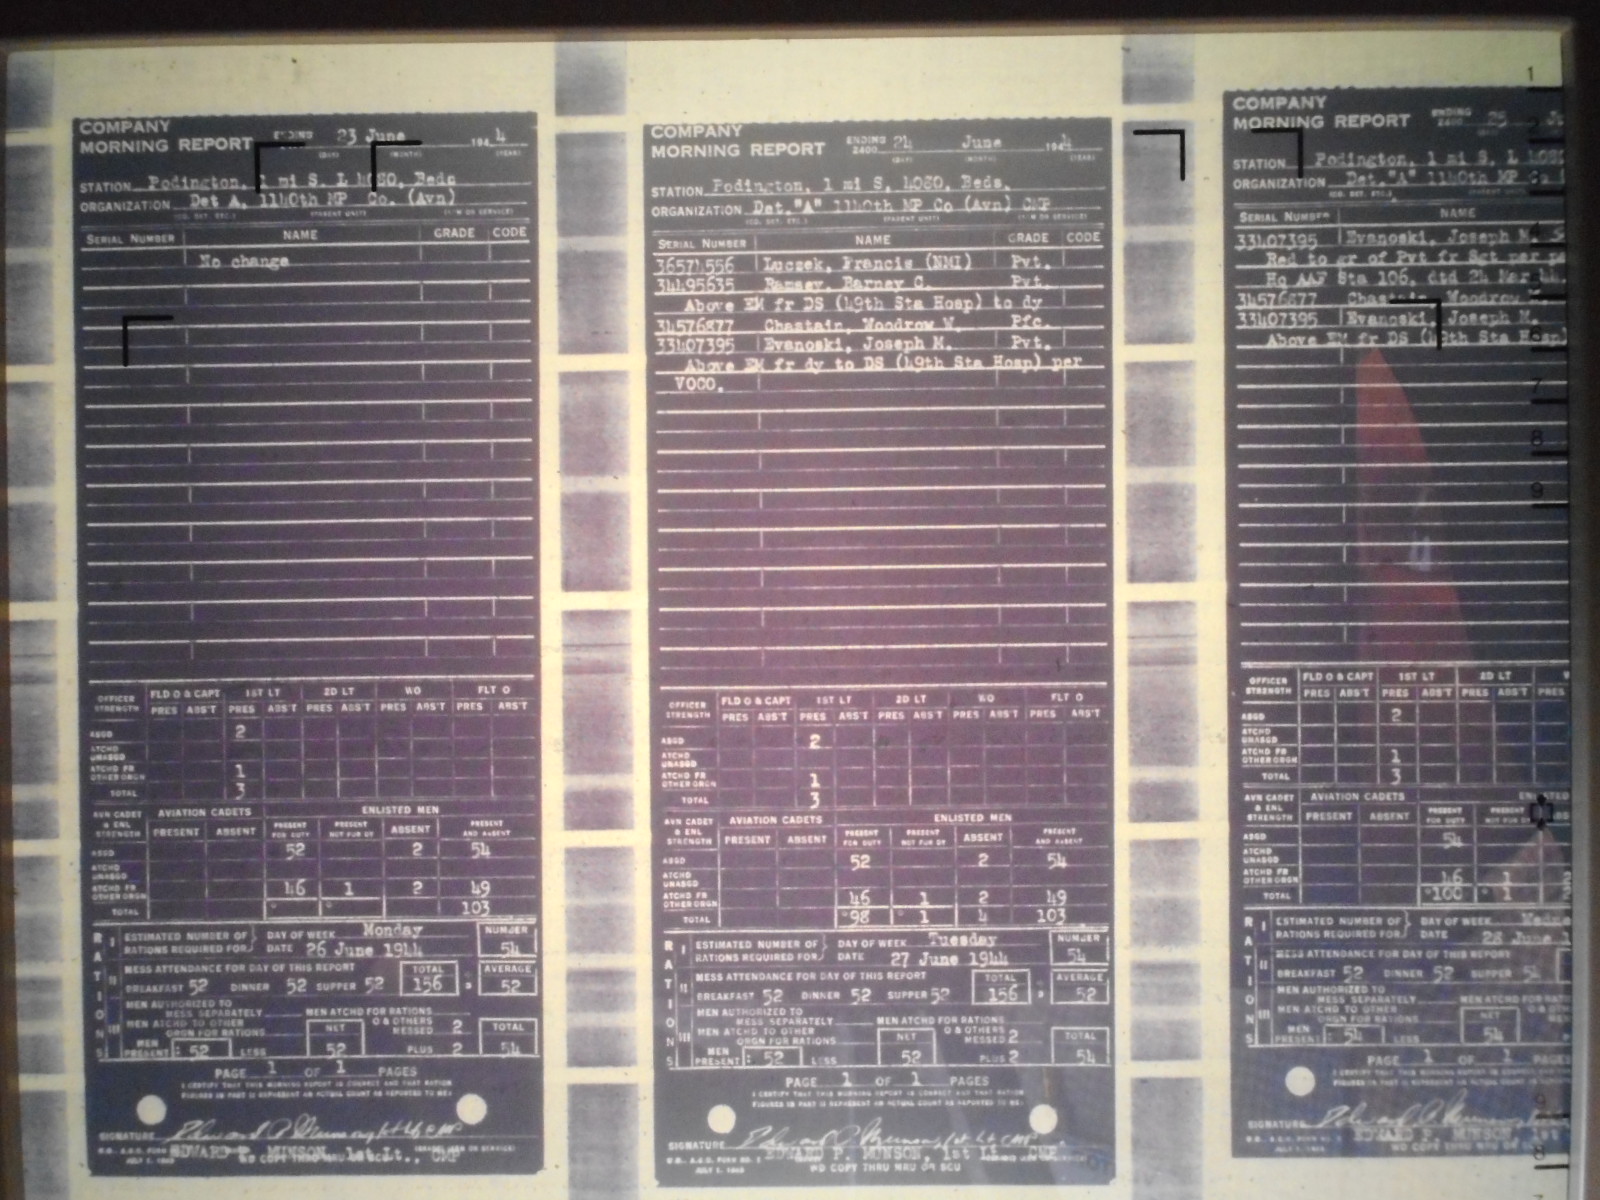 COMPANY
MORNING REPORT ENDING 23 June 194 4
(DAY) (MONTH) (YEAR)
STATION Podington, 1 mi S, L Beds
ORGANIZATION Det A, 1140th MP Co. (Avn)
SERIAL NUMBER NAME GRADE CODE
No change
OFFICER STRENGTH FLD O & CAPT 1ST LT 2D LT WO FLT O
PRES ABS'T PRES ABS'T PRES ABS'T PRES ABS'T PRES ABS'T
ASGD 2
ATCHD UNASGD
ATCHD FR OTHER ORGN 1
TOTAL 3
AVN CADET & ENL STRENGTH AVIATION CADETS ENLISTED MEN
PRESENT ABSENT PRESENT FOR DUTY PRESENT NOT FOR DY ABSENT PRESENT AND ABSENT
ASGD 52 2 54
ATCHD UNASGD
ATCHD FR OTHER ORGN 46 1 2 49
TOTAL 103
RATIONS
I ESTIMATED NUMBER OF RATIONS REQUIRED FOR DAY OF WEEK Monday NUMBER
DATE 26 June 1944 54
II MESS ATTENDANCE FOR DAY OF THIS REPORT TOTAL AVERAGE
BREAKFAST 52 DINNER 52 SUPPER 52 156 52
III MEN AUTHORIZED TO MESS SEPARATELY MEN ATCHD FOR RATIONS
MEN ATCHD TO OTHER ORGN FOR RATIONS NET & OTHERS MESSED 2 TOTAL
MEN PRESENT: 52 LESS 52 PLUS 2 54
PAGE 1 OF 1 PAGES
I CERTIFY THAT THIS MORNING REPORT IS CORRECT AND THAT RATION
FIGURES IN PART II REPRESENT AN ACTUAL COUNT AS REPORTED TO ME:
SIGNATURE Edward P. Munson, 1st Lt CMP
EDWARD P. MUNSON, 1st Lt., CMP
JULY 1, 1943
COMPANY
MORNING REPORT ENDING 2400 24 June 194 4
(DAY) (MONTH) (YEAR)
STATION Podington, 1 mi S, Beds.
ORGANIZATION Det."A" 1140th MP Co (Avn) CMP
SERIAL NUMBER NAME GRADE CODE
36571556 Luczek, Francis (NMI) Pvt.
34495635 Ramsey, Barney C. Pvt.
Above EM fr DS (49th Sta Hosp) to dy
34576877 Chastain, Woodrow W. Pfc.
33407395 Evanoski, Joseph M. Pvt.
Above EM fr dy to DS (49th Sta Hosp) per
VOCO.
OFFICER STRENGTH FLD O & CAPT 1ST LT 2D LT WO FLT O
PRES ABS'T PRES ABS'T PRES ABS'T PRES ABS'T PRES ABS'T
ASGD 2
ATCHD UNASGD
ATCHD FR OTHER ORGN 1
TOTAL 3
AVN CADET & ENL STRENGTH AVIATION CADETS ENLISTED MEN
PRESENT ABSENT PRESENT FOR DUTY PRESENT NOT FOR DY ABSENT PRESENT AND ABSENT
ASGD 52 2 54
ATCHD UNASGD
ATCHD FR OTHER ORGN 46 1 2 49
TOTAL 98 1 4 103
RATIONS
I ESTIMATED NUMBER OF RATIONS REQUIRED FOR DAY OF WEEK Tuesday NUMBER
DATE 27 June 1944 54
II MESS ATTENDANCE FOR DAY OF THIS REPORT TOTAL AVERAGE
BREAKFAST 52 DINNER 52 SUPPER 52 156 52
III MEN AUTHORIZED TO MESS SEPARATELY MEN ATCHD FOR RATIONS
MEN ATCHD TO OTHER ORGN FOR RATIONS NET & OTHERS MESSED 2 TOTAL
MEN PRESENT: 52 LESS 52 PLUS 2 54
PAGE 1 OF 1 PAGES
I CERTIFY THAT THIS MORNING REPORT IS CORRECT AND THAT RATION
FIGURES IN PART II REPRESENT AN ACTUAL COUNT AS REPORTED TO ME:
SIGNATURE Edward P. Munson, 1st Lt. CMP
EDWARD P. MUNSON, 1st Lt. CMP
JULY 1, 1943 WD COPY THRU MRU OR SCU
COMPANY
MORNING REPORT ENDING 2400 25
STATION Podington, 1 mi S, L
ORGANIZATION Det."A" 1140th MP Co
SERIAL NUMBER NAME
33407395 Evanoski, Joseph M.
Red to gr of Pvt fr Sgt per
Hq AAF Sta 106, dtd 24
34576877 Chastain, Woodrow
33407395 Evanoski, Joseph M.
Above EM fr DS (49th Sta Hosp)
OFFICER STRENGTH FLD O & CAPT 1ST LT 2D LT
PRES ABS'T PRES ABS'T PRES ABS'T PRES
ASGD 2
ATCHD UNASGD
ATCHD FR OTHER ORGN 1
TOTAL 3
AVN CADET & ENL STRENGTH AVIATION CADETS
PRESENT ABSENT PRESENT FOR DUTY PRESENT NOT FOR DY
ASGD 54
ATCHD UNASGD
ATCHD FR OTHER ORGN 46 1
TOTAL 100 1
RATIONS
I ESTIMATED NUMBER OF RATIONS REQUIRED FOR DAY OF WEEK
DATE 28 June
II MESS ATTENDANCE FOR DAY OF THIS REPORT
BREAKFAST 52 DINNER 52 SUPPER
III MEN AUTHORIZED TO MESS SEPARATELY MEN ATCHD FOR
MEN ATCHD TO OTHER ORGN FOR RATIONS NET
MEN PRESENT: 54 LESS 54
PAGE 1 OF 1 PAGES
SIGNATURE Edward P. Munson
EDWARD P. MUNSON 1st
JULY 1, 1943 WD COPY THRU MRU OR SCU
1
7
8
9